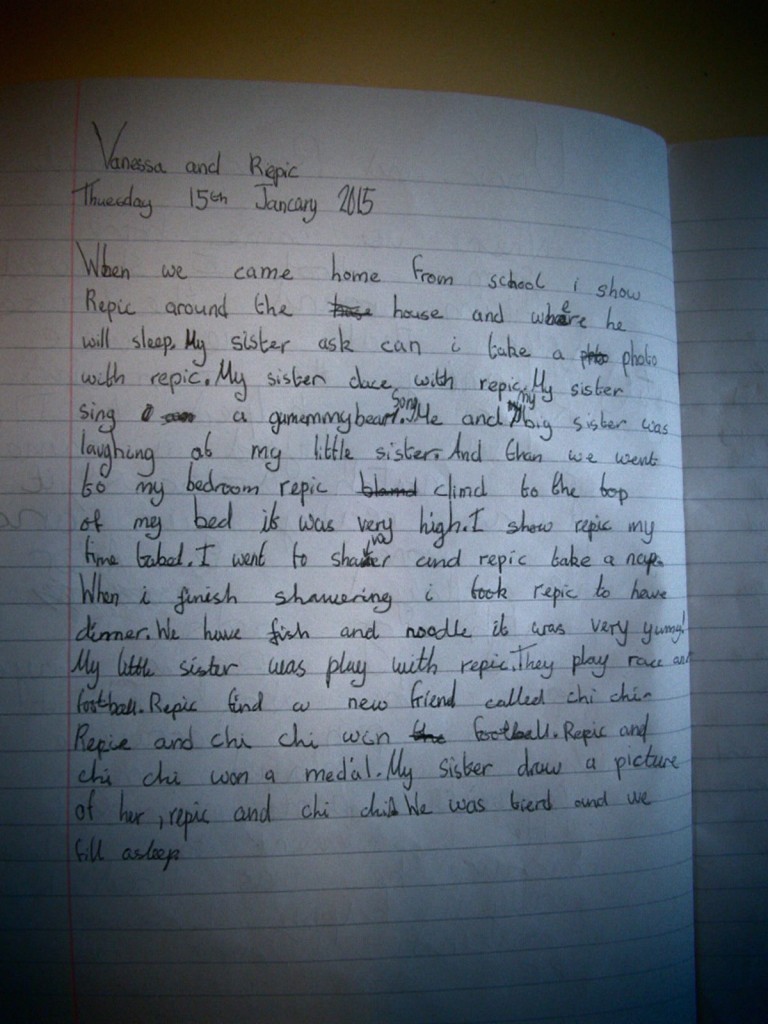 Vanessa and Repic
Thuesday 15th Jancary 2015
When we came home from school i show
Repic around the house and where he
will sleep. My sister ask can i take a photo
with repic. My sister dace with repic. My sister
sing a gumemmybear song. Me and my big sister was
laughing at my little sister. And than we went
to my bedroom repic climd to the top
of my bed it was very high. I show repic my
time tabel. I went to shawer and repic take a nap.
When i finish shawering i took repic to have
dinner. We have fish and noodle it was very yumy!
My little sister was play with repic. They play race and
football. Repic find a new friend called chi chi.
Repic and chi chi win football. Repic and
chi chi won a medal. My sister draw a picture
of her, repic and chi chi. We was tierd and we
fill asleep